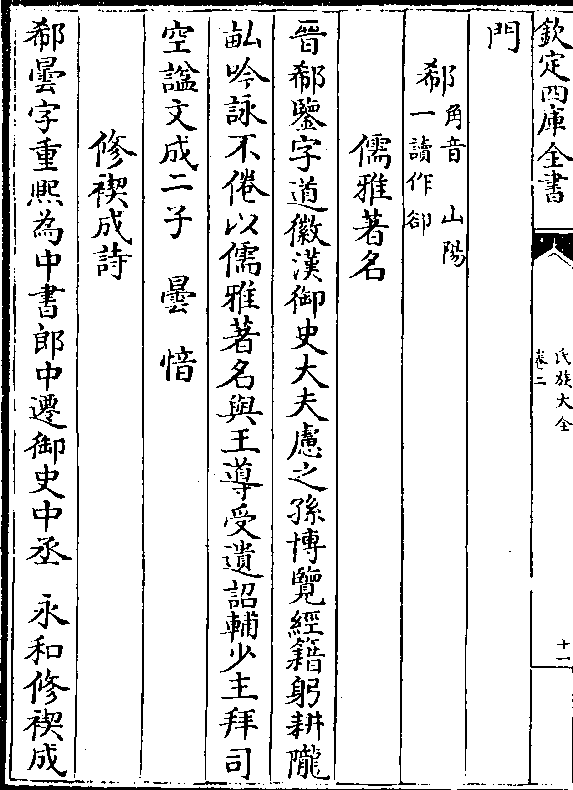 欽定四庫全書
氏族大全
卷二
十一
門
郗
角音　山陽
一讀作郤
儒雅著名
晉郗鑒字道徽漢御史大夫慮之孫博覽經籍躬耕隴
畆吟詠不倦以儒雅著名與王導受遺詔輔少主拜司
空諡文成二子　曇　愔
修禊成詩
郗曇字重熈為中書郎中遷御史中丞　永和修禊成